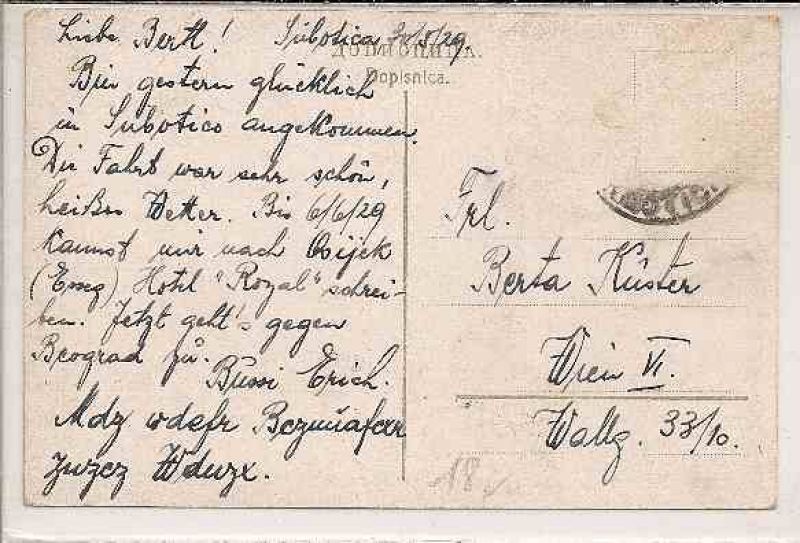 Liebe Bertl! Subotica 30/5/29.
ДОПИСНИЦА.
Dopisnica.
Bin gestern glücklich
in Subotica angekommen.
Die Fahrt war sehr schön,
heißes Wetter. Bis 6/6/29
kannst mir nach Osijek
(Esseg) Hotel "Royal" schrei-
ben. Jetzt geht's gegen
Beograd zu.
Bussi Erich.
Mdz wdefr
zwzcz Wduzx.
Frl.
Berta Küster
Wien VI.
Wallg. 33/10.
18